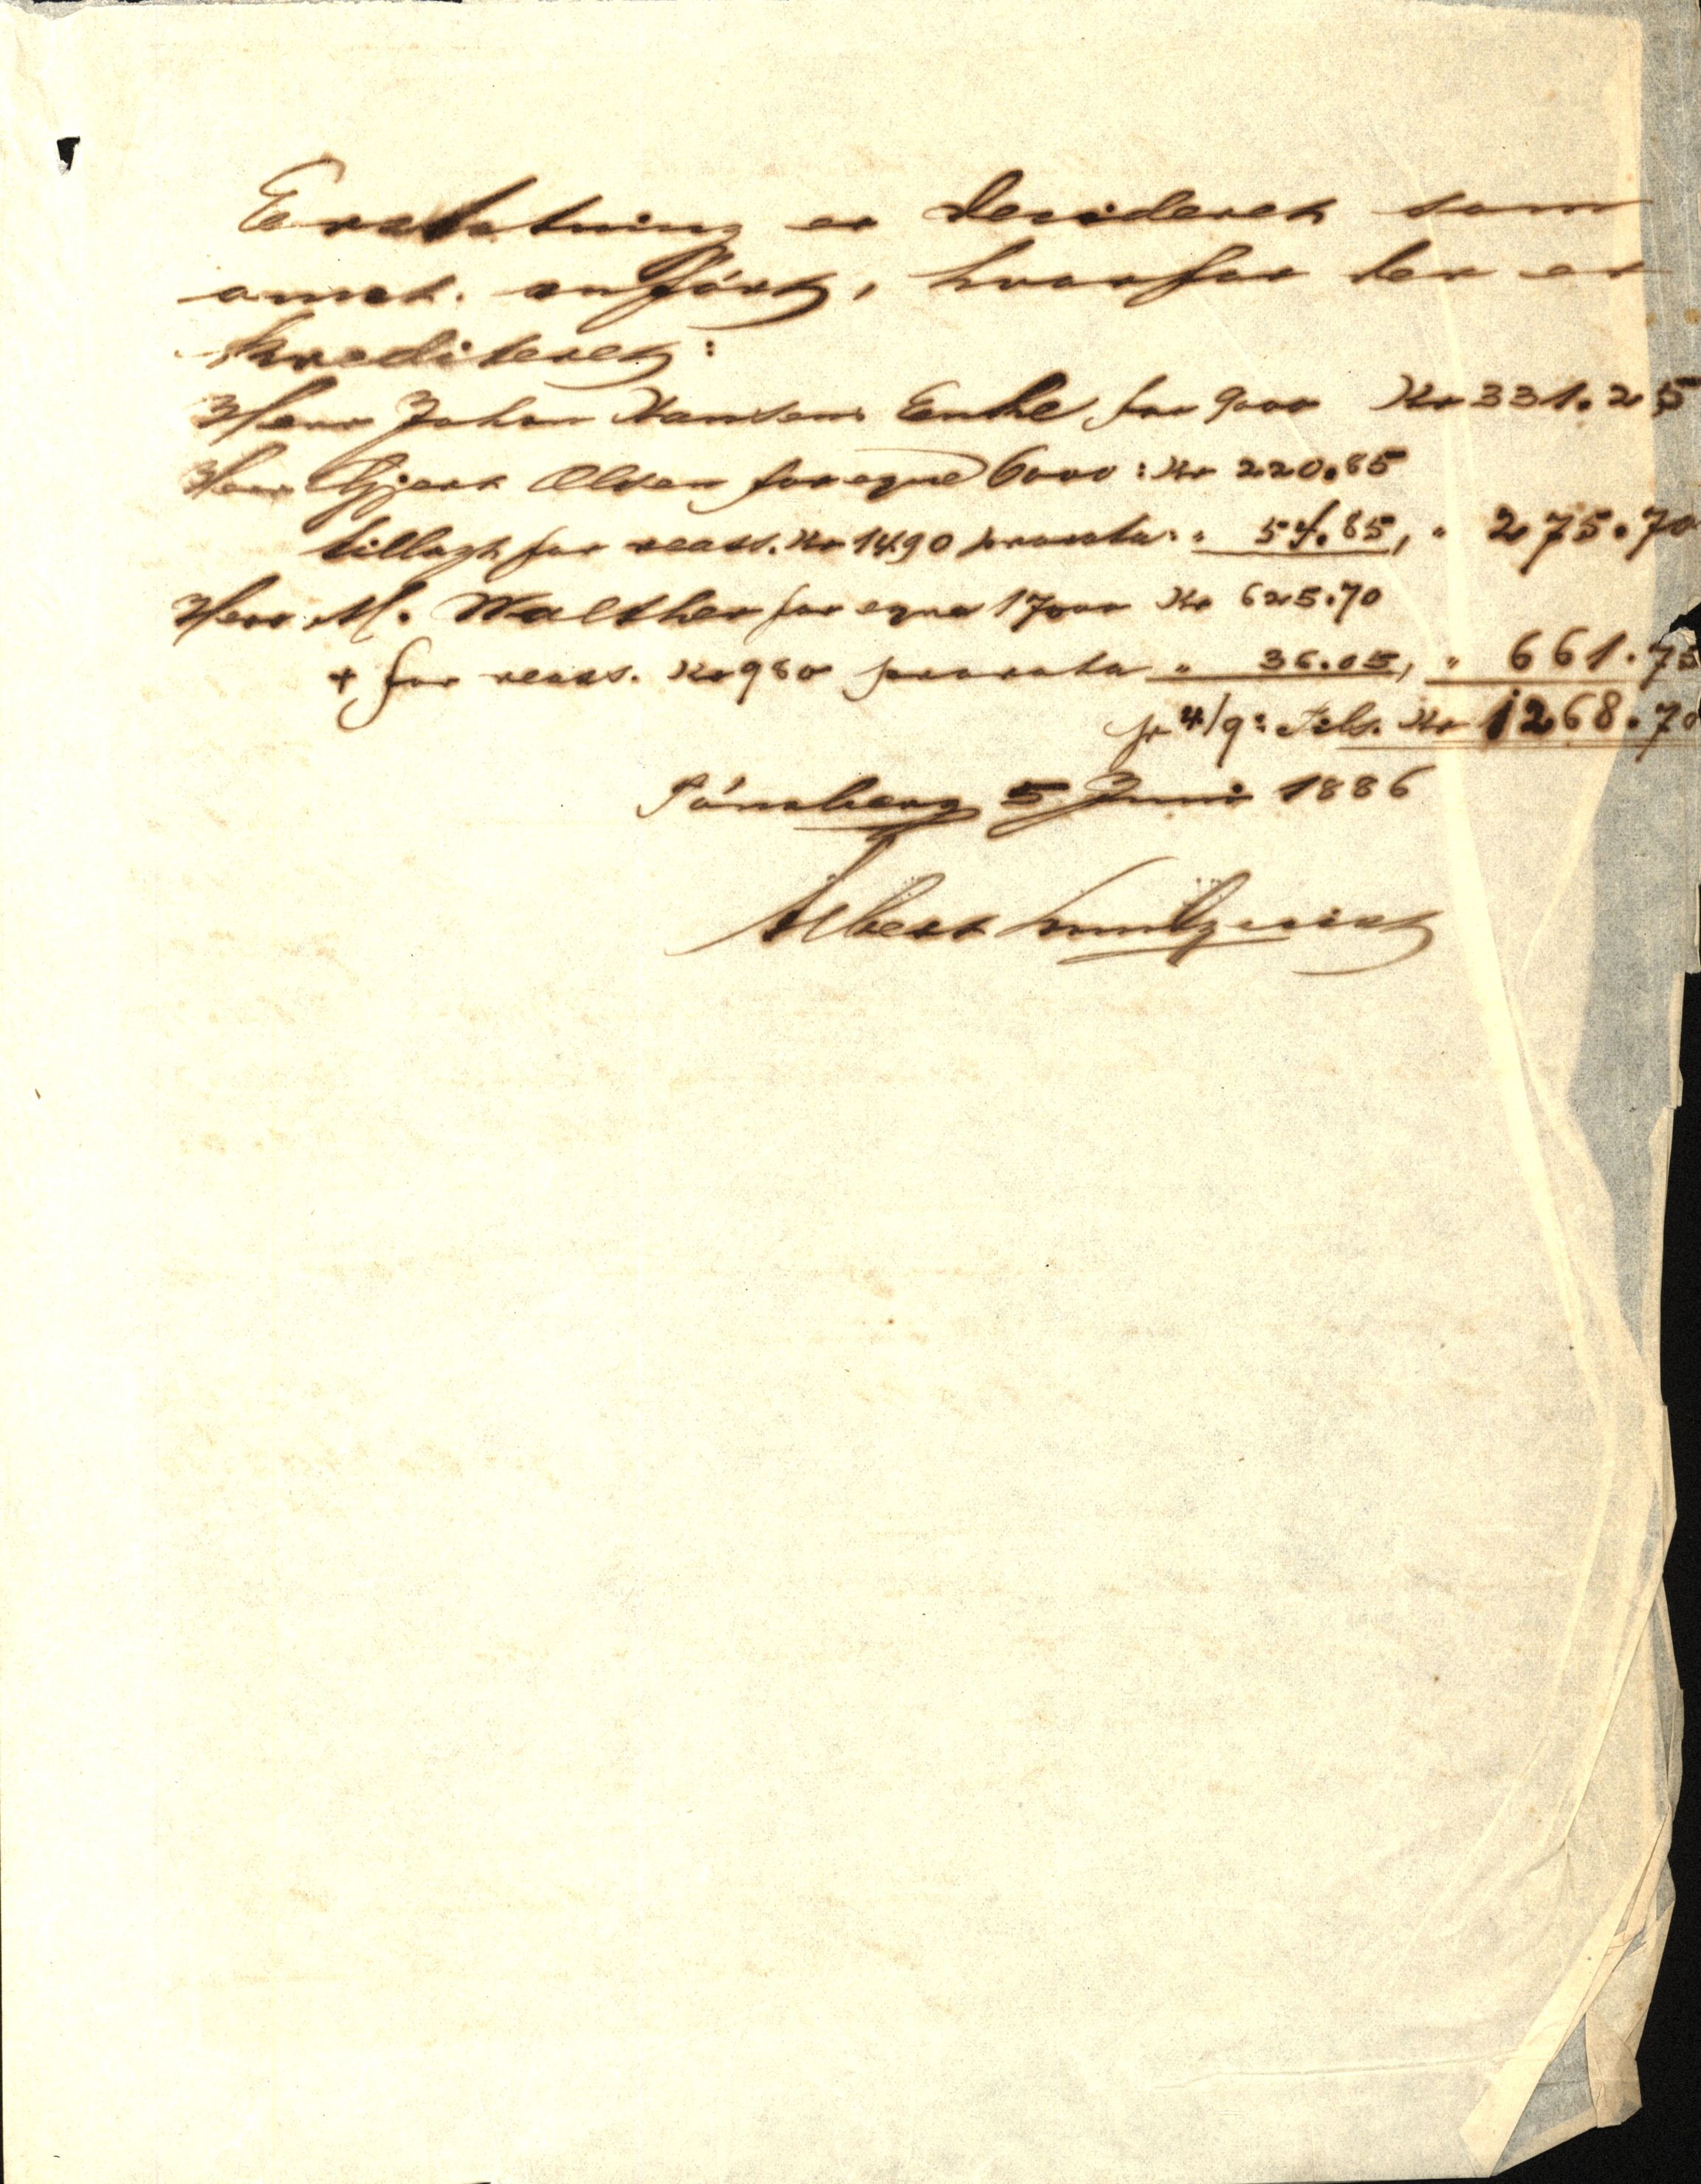 Erstatning er decideret som
omst. anført, hvorfor der er
krediteret:
Herr Johan Hansens Enke for 9000 Kr 331.25
Herr Gjert Olsen for egne 6000: Kr 220.85
tillagt for reass. Kr 1490 prorata: " 54.85, " 275.70
Herr M. Walther for egne 17000 Kr 625.70
+ for reass. Kr 980 prorata " 36.05, " 661.75
pr 4/9: Tils. Kr 1268.70
Tönsberg 5 Juni 1886
Albert